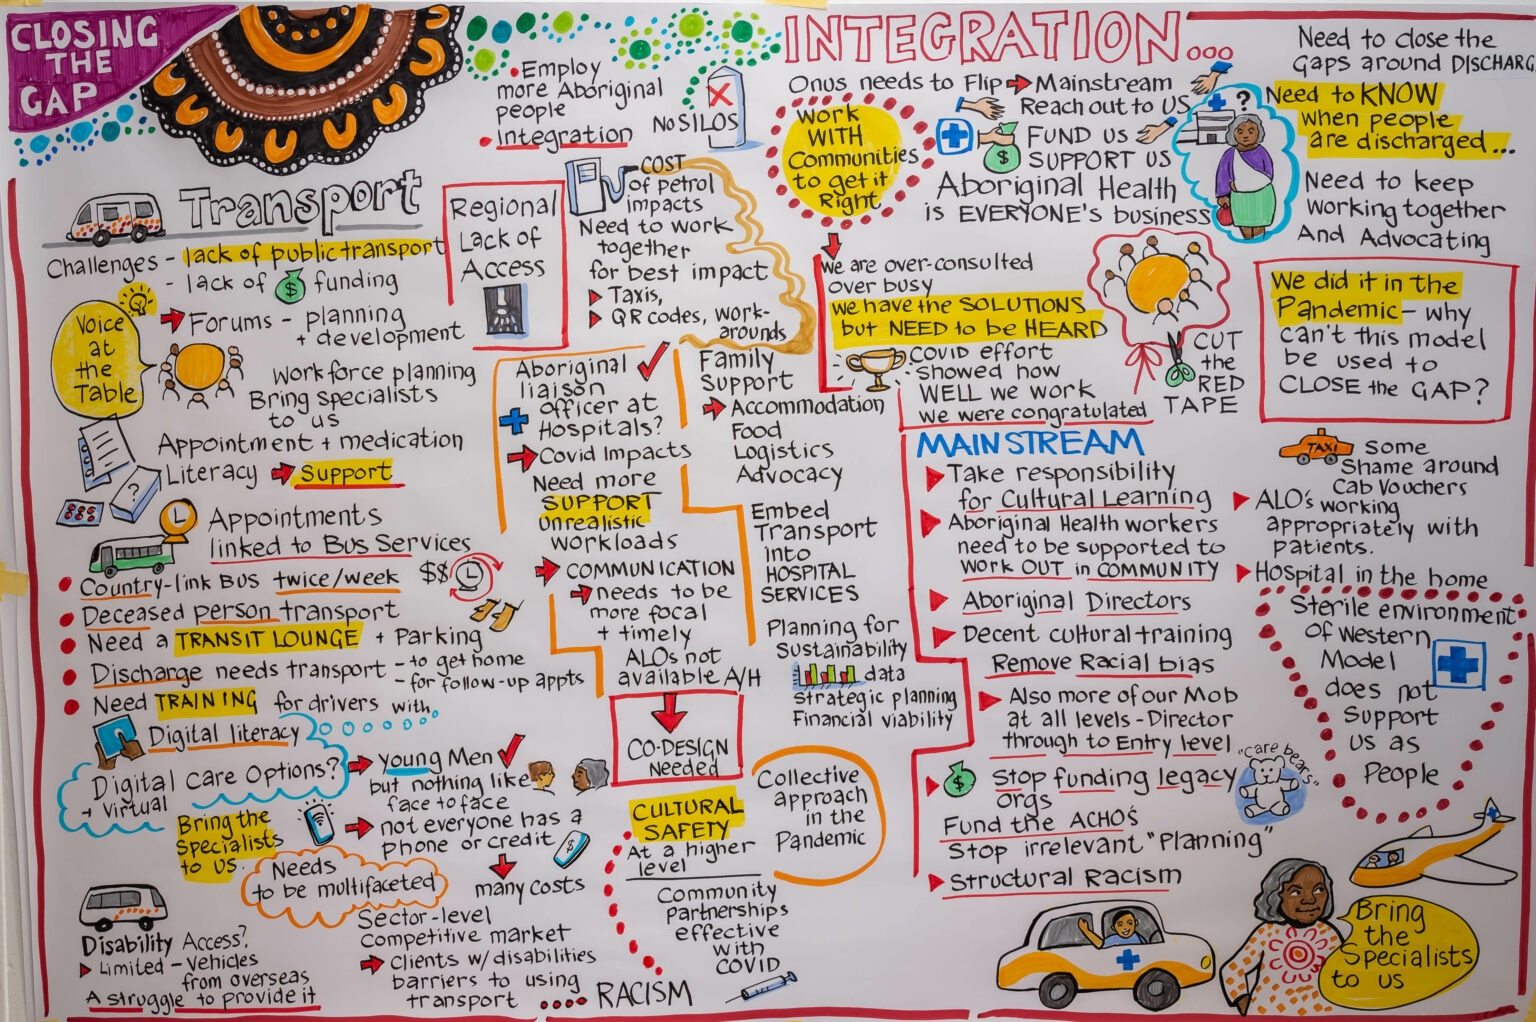 CLOSING
THE
GAP
Employ
more Aboriginal
people
Integration
NO SILOS
Transport
Challenges - lack of public transport
- lack of $ funding
Voice
at
the
Table
Forums - planning
+ development
Workforce planning
Bring specialists
to us
Appointment + medication
Literacy Support
?
Appointments
linked to Bus Services
Country-link BUS twice/week
$$
Deceased person transport
Need a TRANSIT LOUNGE + Parking
Discharge needs transport - to get home
- for follow-up appts
Need TRAINING for drivers with
Digital literacy
Digital Care Options?
+ virtual
Young Men
but nothing like
face to face
not everyone has a
phone or credit
$
many costs
Bring the
Specialists
to us.
Needs
to be multifaceted
Sector-level
competitive market
Clients w/ disabilities
barriers to using
transport
Disability Access?
Limited - Vehicles
from overseas
A struggle to provide it
Regional
Lack of
Access
COST
of petrol
impacts
Need to work
together
for best impact
Taxis,
QR codes, work-
arounds
Aboriginal
liaison
officer at
Hospitals?
Covid Impacts
Need more
SUPPORT
unrealistic
workloads
COMMUNICATION
needs to be
more focal
+ timely
ALOs not
available A/H
CO-DESIGN
Needed
CULTURAL
SAFETY
At a higher
level
Community
partnerships
effective
with
COVID
RACISM
Family
Support
Accommodation
Food
Logistics
Advocacy
Embed
Transport
into
HOSPITAL
SERVICES
Planning for
Sustainability
data
Strategic planning
Financial viability
Collective
approach
in the
Pandemic
INTEGRATION...
Onus needs to Flip Mainstream
Reach out to US
FUND US
$
SUPPORT US
Aboriginal Health
is EVERYONE'S business
Work
WITH
Communities
to get it
Right
We are over-consulted
over busy
We have the SOLUTIONS
but NEED to be HEARD
Covid effort
showed how
WELL we work
we were congratulated
CUT
the
RED
TAPE
?
Need to close the
Gaps around DISCHARG
Need to KNOW
when people
are discharged...
Need to keep
Working together
And Advocating
We did it in the
Pandemic - why
can't this model
be used to
CLOSE the GAP?
MAINSTREAM
Take responsibility
for Cultural Learning
Aboriginal Health workers
need to be supported to
work OUT in COMMUNITY
Aboriginal Directors
Decent cultural training
Remove Racial bias
Also more of our Mob
at all levels - Director
through to Entry level
$ Stop funding legacy
orgs
"care bears"
Fund the ACHO's
Stop irrelevant "Planning"
Structural Racism
TAXI
Some
Shame around
Cab Vouchers
ALO's working
appropriately with
patients.
Hospital in the home
Sterile environment
of Western
Model
does not
Support
us as
People
Bring
the
Specialists
to us